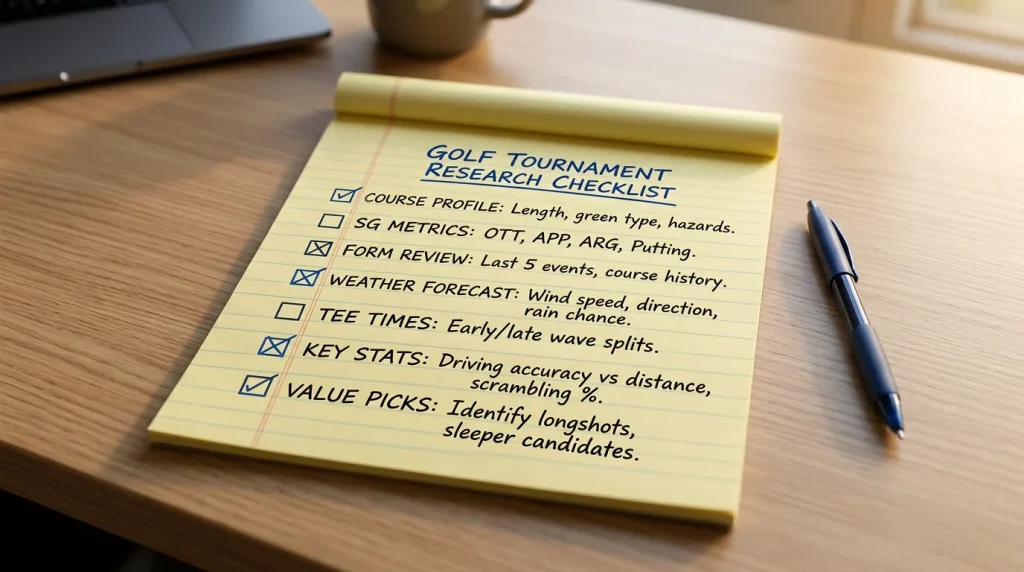 GOLF TOURNAMENT
RESEARCH CHECKLIST
COURSE PROFILE: Length, green type, hazards.
SG METRICS: OTT, APP, ARG, Putting.
FORM REVIEW: Last 5 events, course history.
WEATHER FORECAST: Wind speed, direction,
rain chance.
TEE TIMES: Early/late wave splits.
KEY STATS: Driving accuracy vs distance,
scrambling %.
VALUE PICKS: Identify longshots,
sleeper candidates.